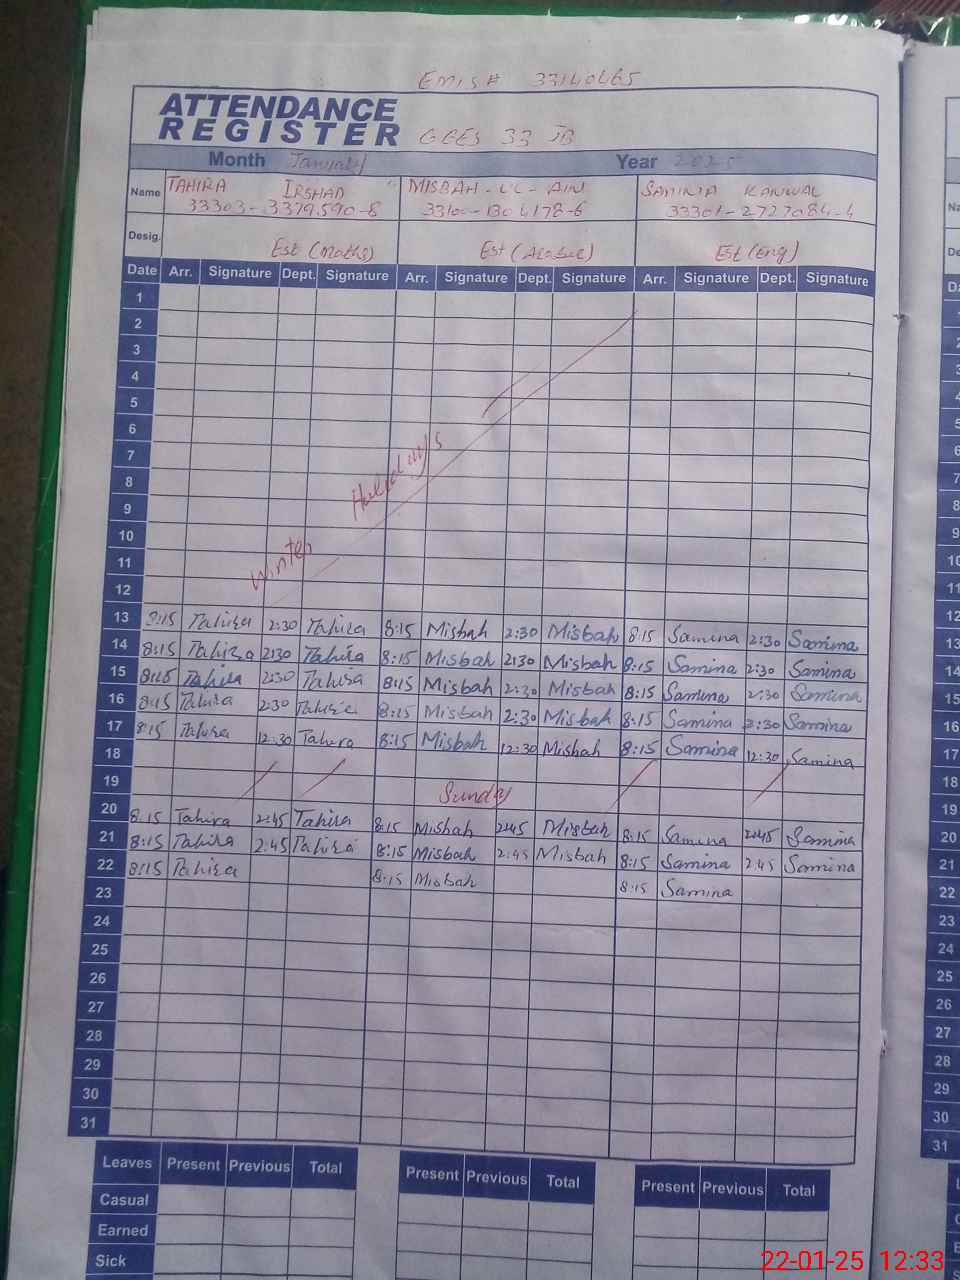 EMIS# 33140465
ATTENDANCE
REGISTER GGES 33 JB
Month January Year 2025
Name TAHIRA IRSHAD MISBAH-UL-AIN SAMINA KANWAL
33303-3379590-8 33301-2727084-4
Desig. Est (Maths) Est (Arabic) Est (Eng)
Date Arr. Signature Dept. Signature Arr. Signature Dept. Signature Arr. Signature Dept. Signature
1
2
3
4
5
6
7
8
9
10
11
12
Winter Holidays
13 8:15 Tahira 2:30 Tahira 8:15 Misbah 2:30 Misbah 8:15 Samina 2:30 Samina
14 8:15 Tahira 2:30 Tahira 8:15 Misbah 2:30 Misbah 8:15 Samina 2:30 Samina
15 8:15 Tahira 2:30 Tahira 8:15 Misbah 2:30 Misbah 8:15 Samina 2:30 Samina
16 8:15 Tahira 2:30 Tahira 8:15 Misbah 2:30 Misbah 8:15 Samina 2:30 Samina
17 8:15 Tahira 12:30 Tahira 8:15 Misbah 12:30 Misbah 8:15 Samina 12:30 Samina
18
19 Sunday
20 8:15 Tahira 2:45 Tahira 8:15 Misbah 2:45 Misbah 8:15 Samina 2:45 Samina
21 8:15 Tahira 2:45 Tahira 8:15 Misbah 2:45 Misbah 8:15 Samina 2:45 Samina
22 8:15 Tahira 8:15 Misbah 8:15 Samina
23
24
25
26
27
28
29
30
31
Leaves Present Previous Total Present Previous Total Present Previous Total
Casual
Earned
Sick
22-01-25 12:33